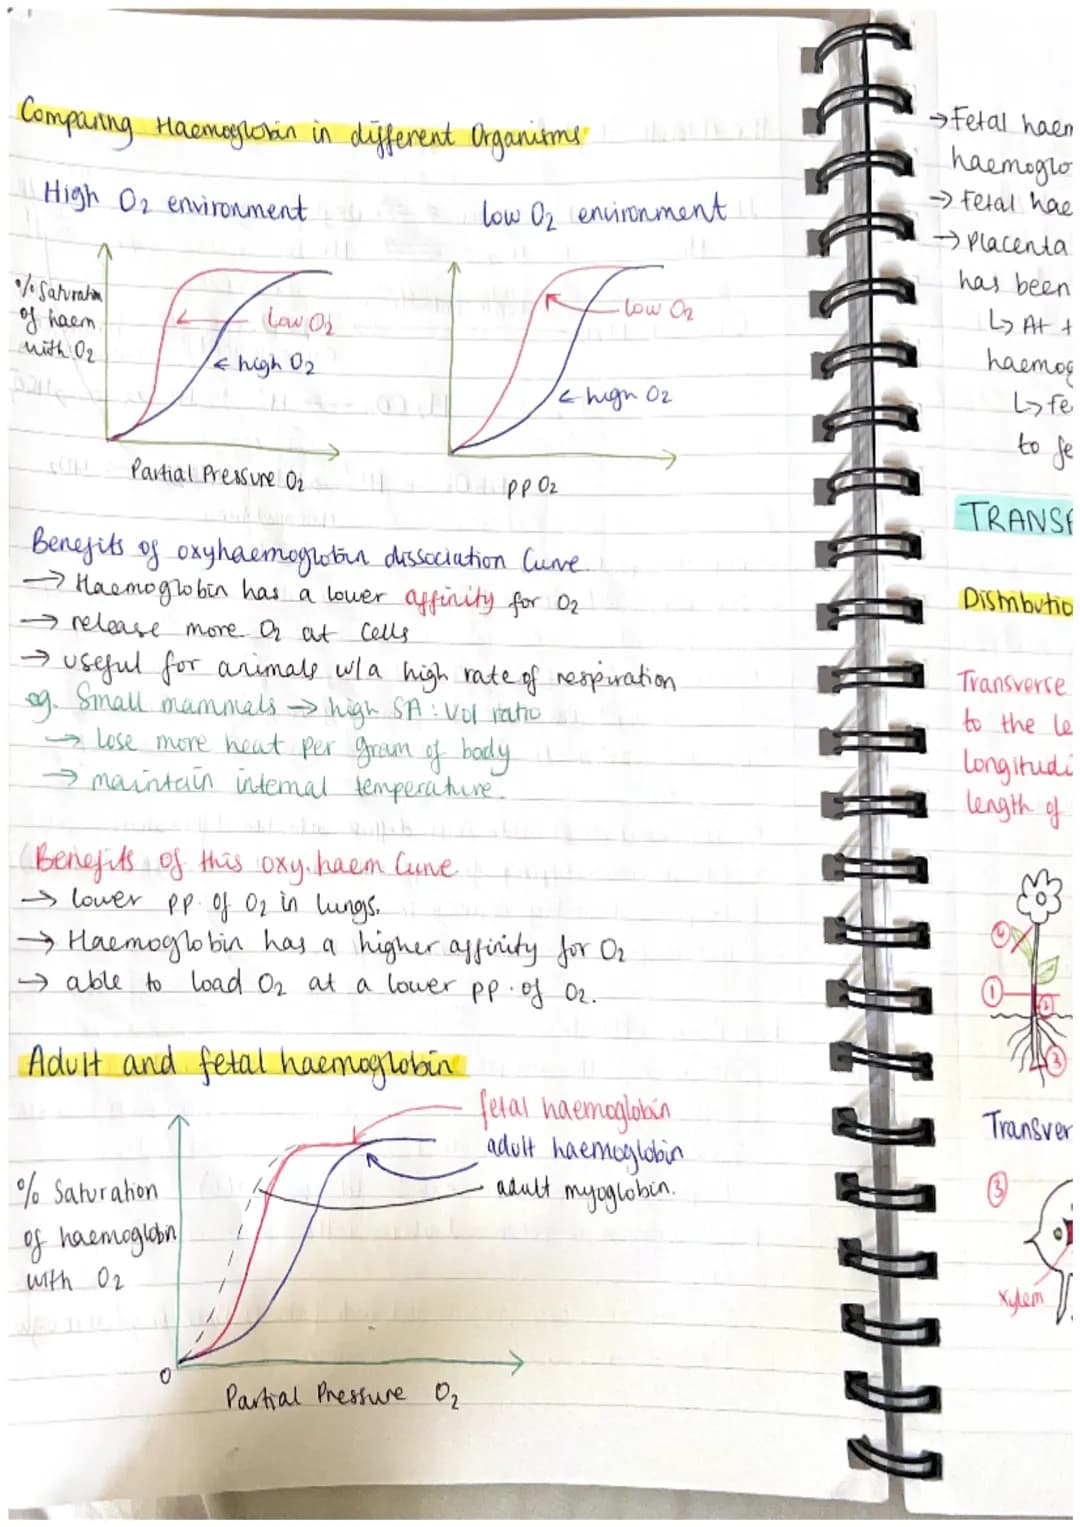 Comparing Haemoglobin in different Organisms
High O2 environment
low O2 environment
% Saturation
of haem
with O2
low O2
high O2
Partial Pressure O2
low O2
high O2
PP O2
Benefits of oxyhaemoglobin dissociation Curve.
→ Haemoglobin has a lower affinity for O2
→ release more O2 at cells
→ useful for animals w/a high rate of respiration
eg. Small mammals → high SA : Vol ratio
→ lose more heat per gram of body
→ maintain internal temperature.
Benefits of this oxy.haem Curve
→ lower pp. of O2 in lungs.
→ Haemoglobin has a higher affinity for O2
→ able to load O2 at a lower pp. of O2.
Adult and fetal haemoglobin
fetal haemoglobin
adult haemoglobin
adult myoglobin.
% Saturation
of haemoglobn
with O2
0
Partial Pressure O2
→ Fetal haem
haemoglo
→ Fetal hae
→ Placenta
has been
↳ At t
haemog
↳ fe
to fe
TRANSP
Distributio
Transverse
to the le
longitudi
length of
1
2
3
Transver
3
Xylem